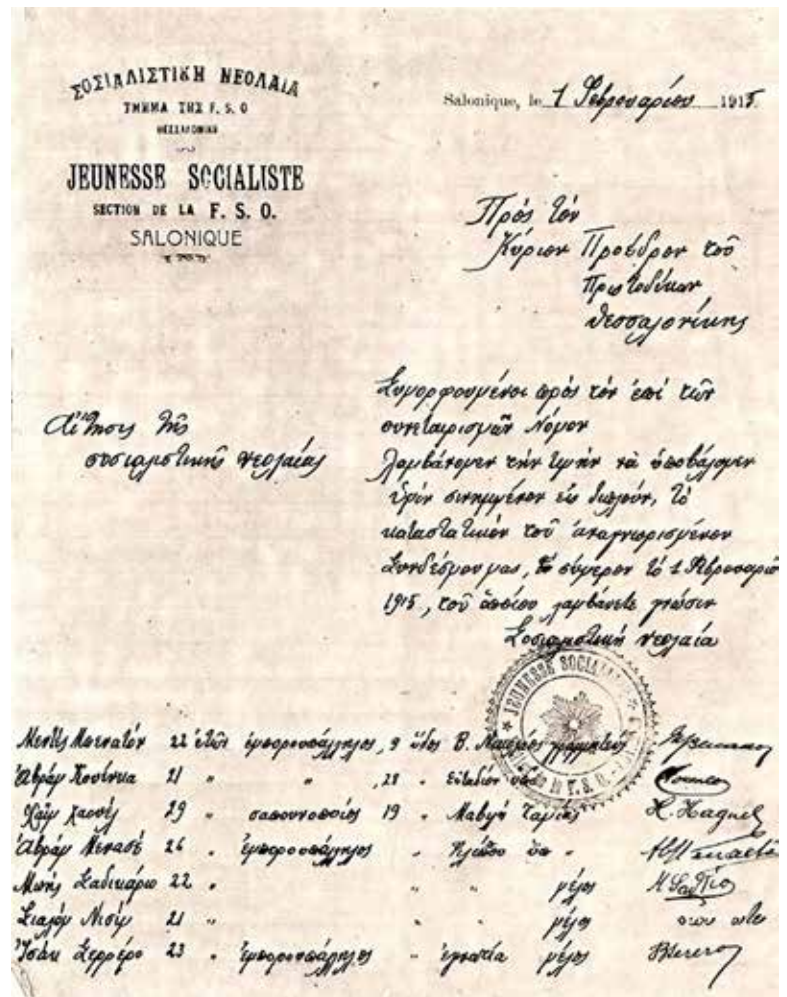 ΣΟΣΙΑΛΙΣΤΙΚΗ ΝΕΟΛΑΙΑ
ΤΜΗΜΑ ΤΗΣ F. S. O
ΘΕΣΣΑΛΟΝΙΚΗ
JEUNESSE SOCIALISTE
SECTION DE LA F. S. O.
SALONIQUE
Salonique, le 1 Φεβρουαρίου 1915
Πρός τον
Κύριον Πρόεδρον τοῦ
Πρωτοδίκων
Θεσσαλονίκης
Αἴτησις τῆς
σοσιαλιστικῆς νεολαίας
Συμορφουμένοι πρὸς τὸν ἐπὶ τῶν
συνεταιρισμῶν Νόμον
λαμβάνομεν τὴν τιμὴν νὰ ὑποβάλομεν
ὑμῖν συνημμένον εἰς διπλοῦν, τὸ
καταστατικὸν τοῦ ἀναγνωρισμένου
Συνδέσμου μας, σήμερον τὸ 1 Φεβρουαρίου
1915, τοῦ ὁποίου λαμβάνετε γνῶσιν
Σοσιαλιστική νεολαία
JEUNESSE SOCIALISTE
F. S. O.
22 ἐτῶν ἐμποροϋπάλληλος, 9 ὁδός Β. γραμματεύς
Ἀβράμ 21 " " , 28 "
Χαΐμ Χαγουέλ 29 " σαπουνοποιός 19 " Ταμίας H. Haguel
Ἀβράμ Μενασέ 26 " ἐμποροϋπάλληλος "
Μωής 22 " " " μέλος
Σιαλόμ Νισίμ 21 " " " μέλος
Ἰσάκ Σερρέρο 23 " ἐμποροϋπάλληλος " ἐγνατία μέλος